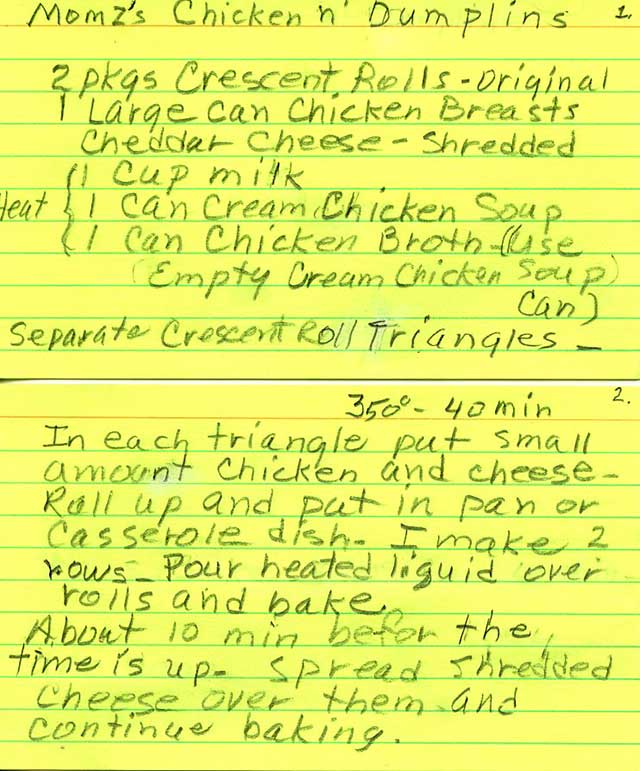 Momz's Chicken n' Dumplins 1.
2 pkgs Crescent Rolls - Original
1 Large Can Chicken Breasts
Cheddar Cheese - Shredded
1 Cup milk
Heat { 1 Can Cream Chicken Soup
1 Can Chicken Broth - (Use
(Empty Cream Chicken Soup)
Can)
Separate Crescent Roll Triangles -
350° - 40 min 2.
In each triangle put small
amount chicken and cheese -
Roll up and put in pan or
Casserole dish - I make 2
rows - Pour heated liquid over
rolls and bake.
About 10 min befor the
time is up - spread shredded
cheese over them and
continue baking.